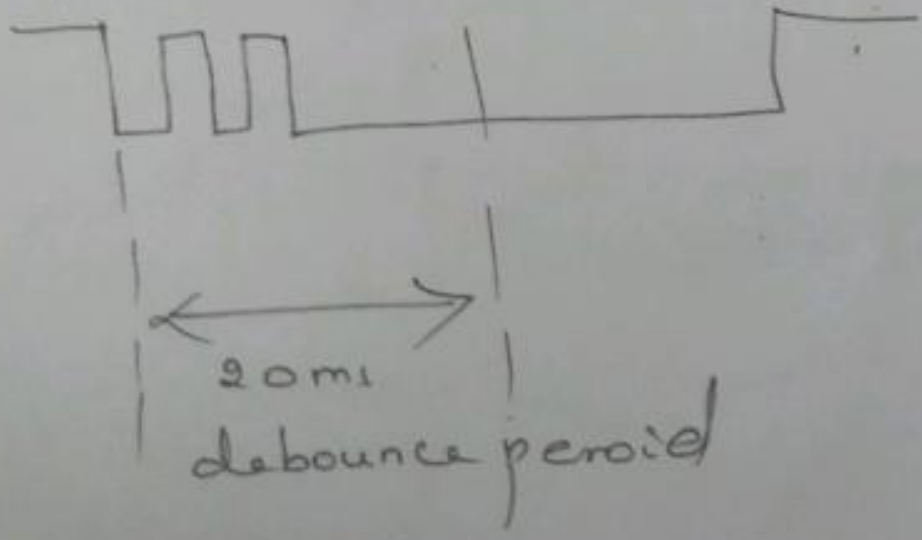 20ms
debounce peroid